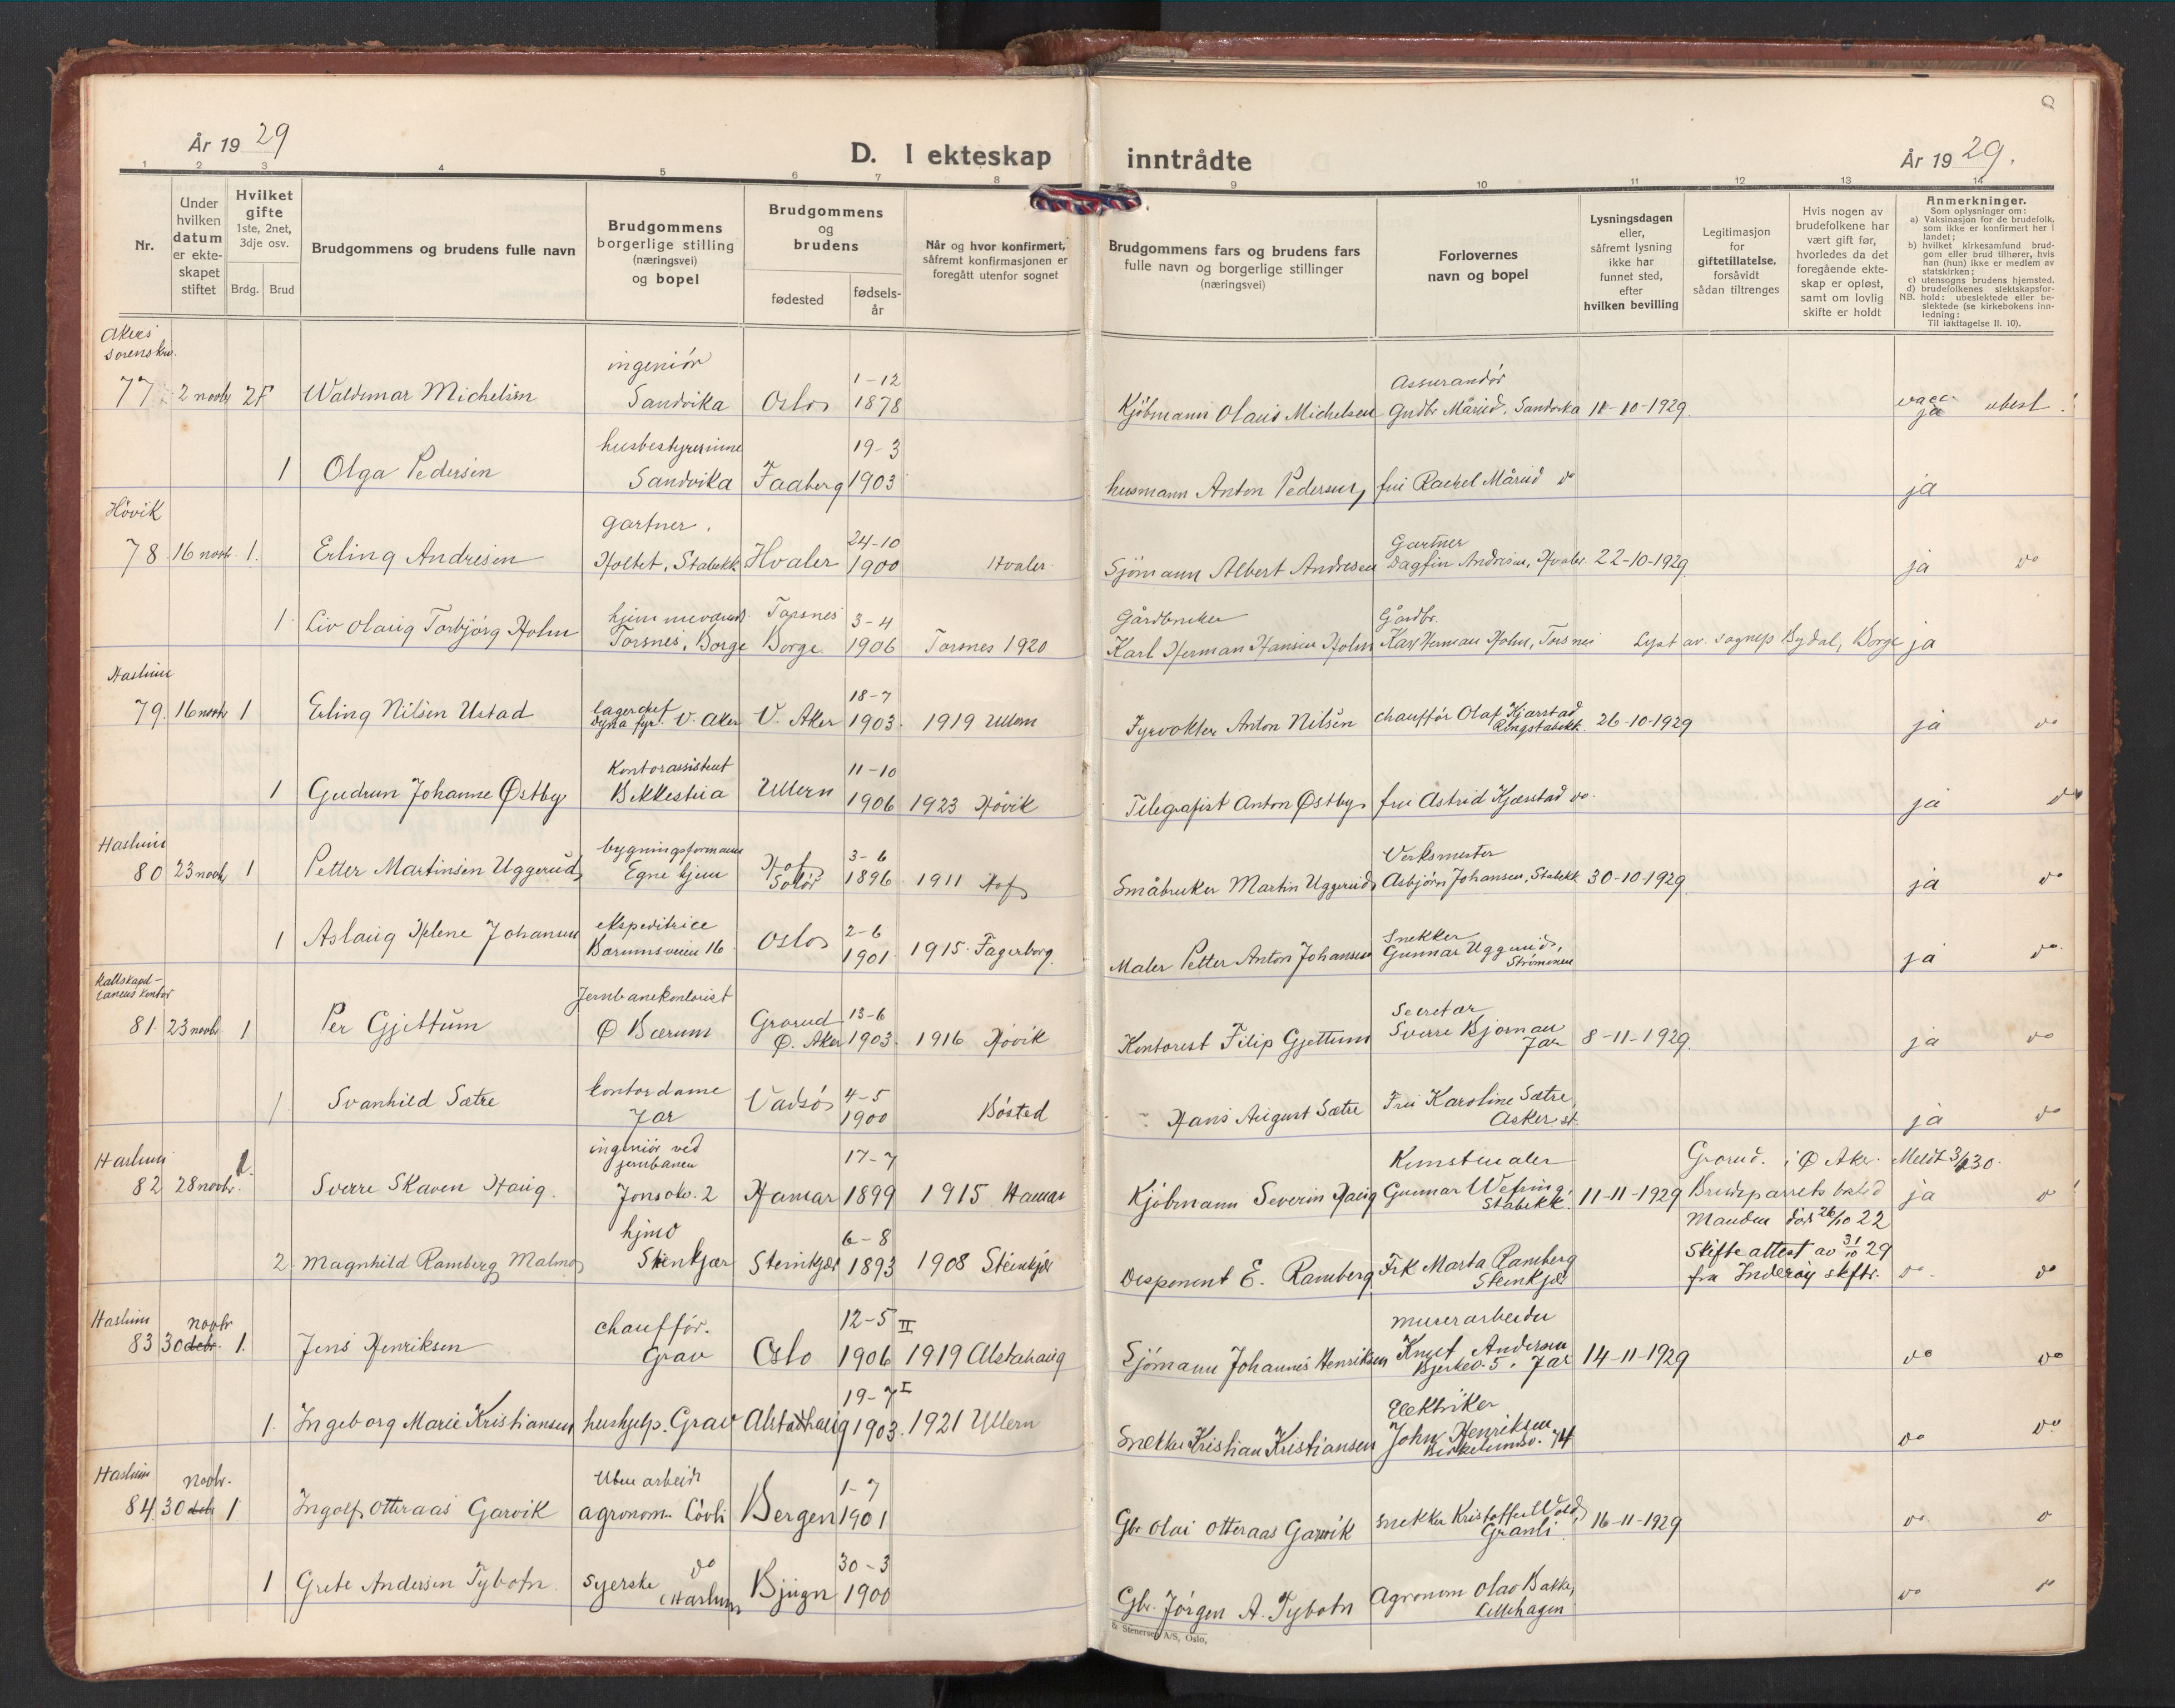 År 19 29
D. I ekteskap inntrådte
År 19 29.
1 2 3 4 5 6 7 8 9 10 11 12 13 14
Nr.
Under hvilken datum er ekteskapet stiftet
Hvilket gifte 1ste, 2net, 3dje osv.
Brdg. Brud
Brudgommens og brudens fulle navn
Brudgommens borgerlige stilling (næringsvei) og bopel
Brudgommens og brudens
fødested
fødselsår
Når og hvor konfirmert, såfremt konfirmasjonen er foregått utenfor sognet
Brudgommens fars og brudens fars fulle navn og borgerlige stillinger (næringsvei)
Forlovernes navn og bopel
Lysningsdagen eller, såfremt lysning ikke har funnet sted, efter hvilken bevilling
Legitimasjon for giftetillatelse, forsåvidt sådan tiltrenges
Hvis nogen av brudefolkene har vært gift før, hvorledes da det foregående ekteskap er opløst, samt om lovlig skifte er holdt
Anmerkninger.
Som oplysninger om:
a) Vaksinasjon for de brudefolk, som ikke er konfirmert her i landet;
b) hvilket kirkesamfund brudgom eller brud tilhører, hvis han (hun) ikke er medlem av statskirken;
c) utensogns brudens hjemsted.
d) brudefolkenes slektskapsforhold: ubeslektede eller beslektede (se kirkebokens innledning:
NB.
Til iakttagelse II. 10).
Akers sorenskr.
77 2 novbr 2F Waldemar Michelsen ingeniør Sandvika Oslo 1-12 1878 Kjøbmann Olaus Michelsen Assurandør Gudbr. Mårud, Sandvika 11-10-1929 vacc. ja ubesl.
1 Olga Pedersen husbestyrerinne Sandvika Faaberg 19-3 1903 husmann Anton Pedersen, fru Rachel Mårud do ja
Høvik
78 16 novbr. 1. Erling Andresen gartner. Holtet, Stabekk Hvaler 24-10 1900 Hvaler. Sjømann Albert Andresen Gartner Dagfin Andresen, Hvaler. 22-10-1929 ja do
1 Liv Olaug Torbjørg Holm hjemmeværende Torsnes, Borge Torsnes Borge 3-4 1906 Torsnes 1920 Gårdbruker Karl Herman Hansen Holm Gårdbr. Karl Herman Holm, Torsnes Lyst av. sognepr Bydal, Borge ja
Haslum
79. 16 novbr 1 Erling Nilsen Ustad lagerchef Dyna fyr. V. Aker V. Aker 18-7 1903. 1919 Ullern Fyrvokter Anton Nilsen chauffør Olaf Kjærstad Ringstabekk 26-10-1929 ja do
1 Gudrun Johanne Østby Kontorassistent Bekkestua Ullern 11-10 1906 1923 Høvik Telegrafist Anton Østby, fru Astrid Kjærstad do. ja do
Haslum
80 23 novbr 1 Petter Martinsen Uggerud bygningsformann Egne hjem Hof Solør 3-6 1896 1911 Hof Småbruker Martin Uggerud Verksmester Asbjørn Johansen, Stabekk 30-10-1929 ja do
1 Aslaug Helene Johansen ekspeditrice Bærumsveien 16 Oslo 2-6 1901 1915. Fagerborg. Maler Petter Anton Johansen Snekker Gunnar Uggerud, Strømmen ja do
81. 23 novbr. 1 Per Gjettum Jernbanekontorist Ø Bærum Grorud Ø. Aker 13-6 1903. 1916 Høvik Kontorist Filip Gjettum Secretær Sverre Bjørnau Jar 8-11-1929. ja do
1 Svanhild Sætre kontordame Jar Vadsø 4-5 1900 Bøsted Hans August Sætre Fru Karoline Sætre, Asker st. ja do
Haslum
82 28 novbr. 1. Sverre Skaven Haug. ingeniør ved jernbanen Jonsokv. 2 Hamar 17-7 1899 1915 Hamar Kjøbmann Severin Haug Kunstmaler Gunnar Wefring, Stabekk. 11-11-1929 Grorud. i Ø Aker. Meldt 3/1 30. Brudeparrets bsted ja do
2. Magnhild Ramberg Malmo hjmv Steinkjær Steinkjær 6-8 1893 1908 Steinkjær Disponent E. Ramberg Frk Marta Ramberg Steinkjær Manden død 26/10 22 Skifteattest av 31/10 29 fra Inderøy skiftr. do. do
Haslum
83 30 debr. novbr 1. Jens Henriksen chauffør. Grav Oslo 12-5 1906 II 1919 Alstahaug Sjømann Johannes Henriksen murerarbeider Knut Andersen Bjerkev. 5. Jar 14-11-1929 do do
1. Ingeborg Marie Kristiansen hushjelp. Grav Alstadhaug 19-7 1903. I 1921 Ullern Snekker Kristian Kristiansen Elektriker John Henriksen Birkelundv. 14 do do
Haslum
84. 30 debr novbr. 1 Ingolf Otteraas Garvik Uten arbeide agronom. Løvli Bergen 1-7 1901 Gbr Olai Otteraas Garvik snekker Kristoffer Wold, Granli 16-11-1929 do. do
1 Grete Andersen Tybotn syerske do (Haslum Bjugn 30-3 1900 Gbr. Jørgen A. Tybotn Agronom Olav Bakke, Lillehagen do do
Stenersen A/S, Oslo,